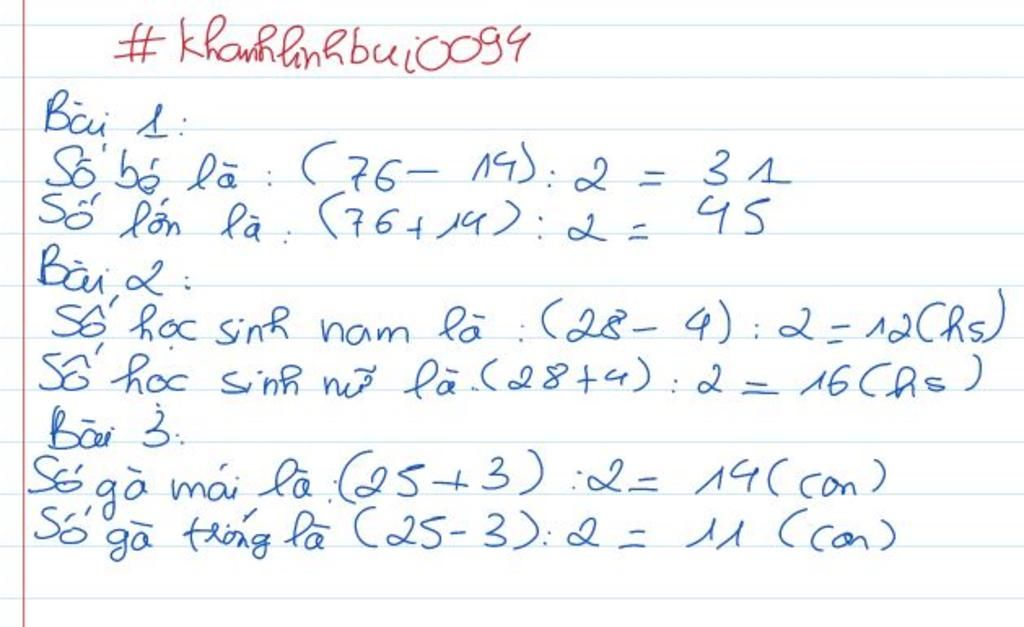 #khanhlinhbui0094
Bài 1:
Số bé là : (76 - 14) : 2 = 31
Số lớn là : (76 + 14) : 2 = 45
Bài 2 :
Số học sinh nam là : (28 - 4) : 2 = 12 (hs)
Số học sinh nữ là : (28 + 4) : 2 = 16 (hs)
Bài 3 :
Số gà mái là : (25 + 3) : 2 = 14 (con)
Số gà trống là (25 - 3) : 2 = 11 (con)